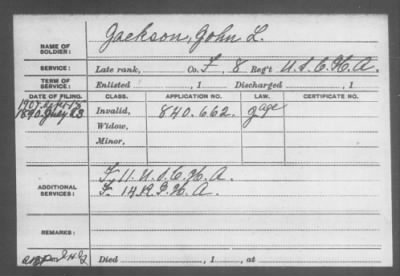 NAME OF SOLDIER: Jackson, John L.
SERVICE: Late rank, Co. F, 8 Reg't U.S.C.H.A.
TERM OF SERVICE: Enlisted , 1 Discharged , 1
DATE OF FILING. CLASS. APPLICATION NO. LAW. CERTIFICATE NO.
1907
1890 July Invalid, 840.662. age
Widow,
Minor,
ADDITIONAL SERVICES: F, 11. U.S.C.H.A.
F. 14. R.I.H.A.
REMARKS:
Died , 1 , at